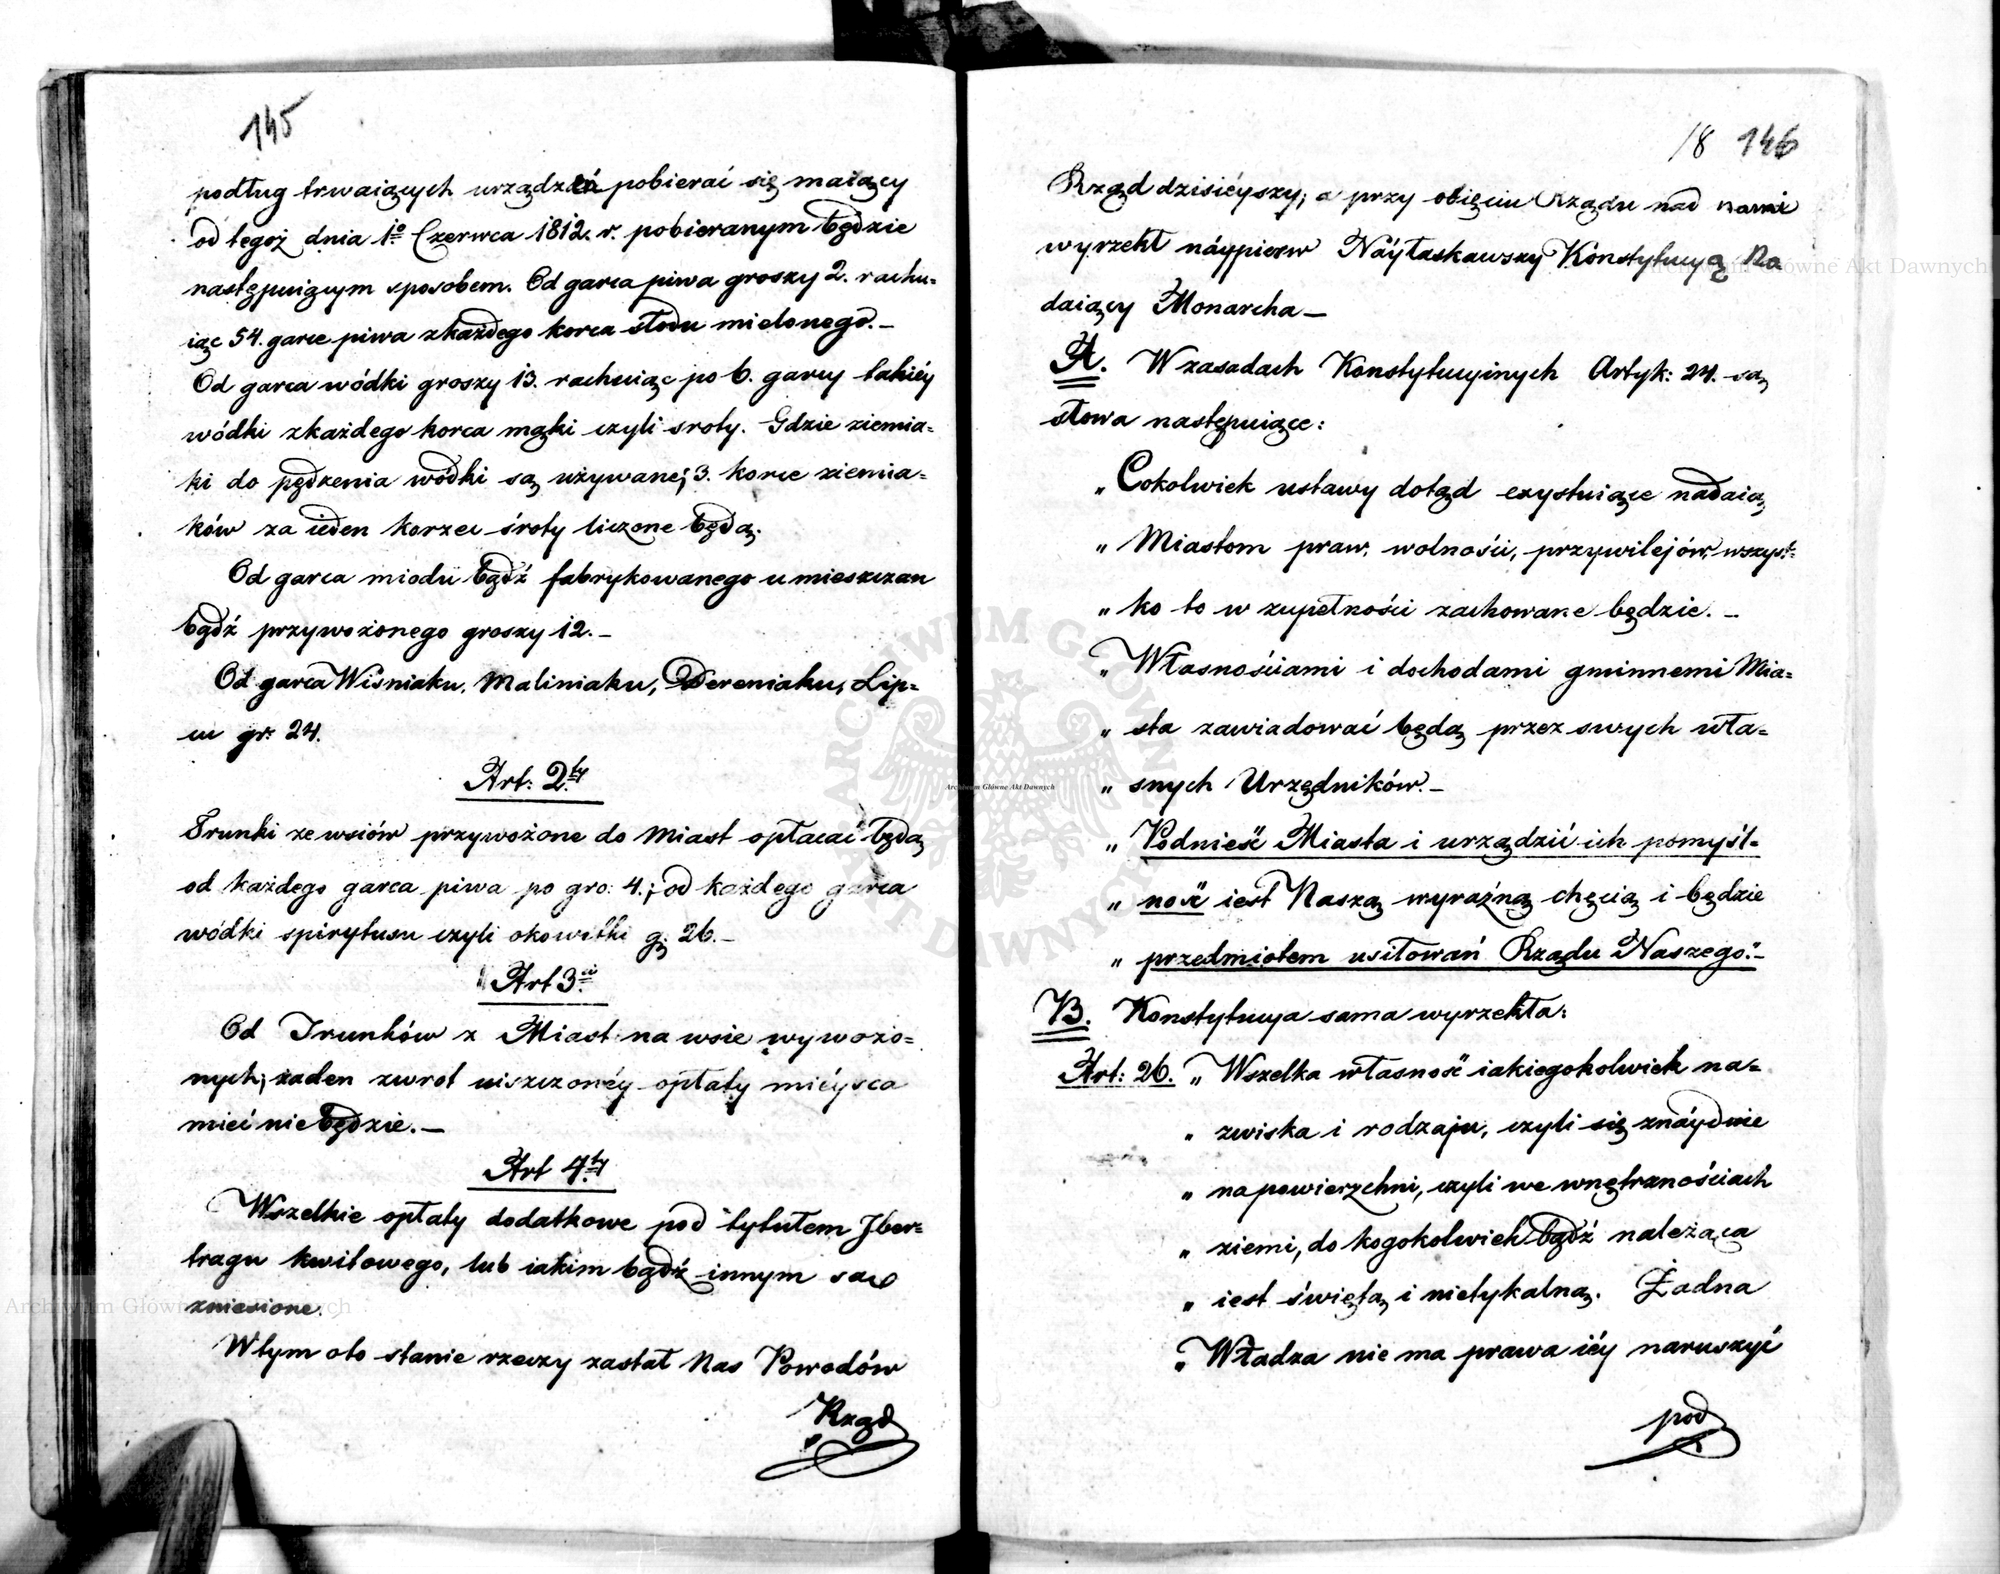 145
podług trwaiących urządzeń pobierać się maiący
od tegoż dnia 1º Czerwca 1812. r. pobieranym będzie
następuiącym sposobem. Od garca piwa groszy 2. rachu-
iąc 54. garce piwa z każdego korca słodu mielonego.—
Od garca wódki groszy 13. rachuiąc po 6. garcy takiéy
wódki z każdego korca mąki czyli sroty. Gdzie ziemia-
ki do pędzenia wódki są używane; 3. korce ziemia-
ków za ieden korzec śroty liczone będą.
Od garca miodu bądź fabrykowanego u mieszczan
bądź przywożonego groszy 12.—
Od garca Wiśniaku, Maliniaku, Dereniaku, Lip-
cu gr: 24.
Art: 2.ty
Trunki ze wsiów przywożone do Miast opłacać będą
od każdego garca piwa po gro: 4.; od każdego garca
wódki spirytusu czyli okowitki g: 26.—
Art 3.ci
Od Trunków z Miast na wsie wywożo-
nych; żaden zwrot uiszczonéy opłaty miéysca
mieć nie będzie.—
Art 4.ty
Wszelkie opłaty dodatkowe pod tytułem Iber-
tragu kwitowego, lub iakim bądź innym są
zniesione.
W tym oto stanie rzeczy zastał Nas Powodów
Rząd
18 146
Rząd dzisiéyszy; a przy obięciu Rządu nad nami
wyrzekł náypierw Náyłaskawszy Konstytucyą Na
daiący Monarcha—
A. W zasadach Konstytucyinych Artyk: 24. są
słowa następuiące:
„ Cokolwiek ustawy dotąd exystuiące nadaią
„ Miastom praw, wolności, przywilejów, wszyst-
„ ko to w zupełności zachowane będzie.—
„ Własnościami i dochodami gminnemi Mia-
„ sta zawiadować będą przez swych wła-
„ snych Urzędników.—
„ Podnieść Miasta i urządzić ich pomyśl-
„ ność iest Naszą wyraźną chęcią i będzie
„ przedmiotem usiłowań Rządu Naszego."—
B. Konstytucya sama wyrzekła:
Art: 26. „ Wszelka własność iakiegokolwiek na-
„ zwiska i rodzaju, czyli się znáyduie
„ na powierzchni, czyli we wnętrznościach
„ ziemi, do kogokolwiek bądź należąca
„ iest świętą i nietykalną. Żadna
„ Władza nie ma prawa iéy naruszyć
pod
ARCHIWUM GŁÓWNE AKT DAWNYCH
Archiwum Główne Akt Dawnych
Archiwum Główne Akt Dawnych
Archiwum Główne Akt Dawnych